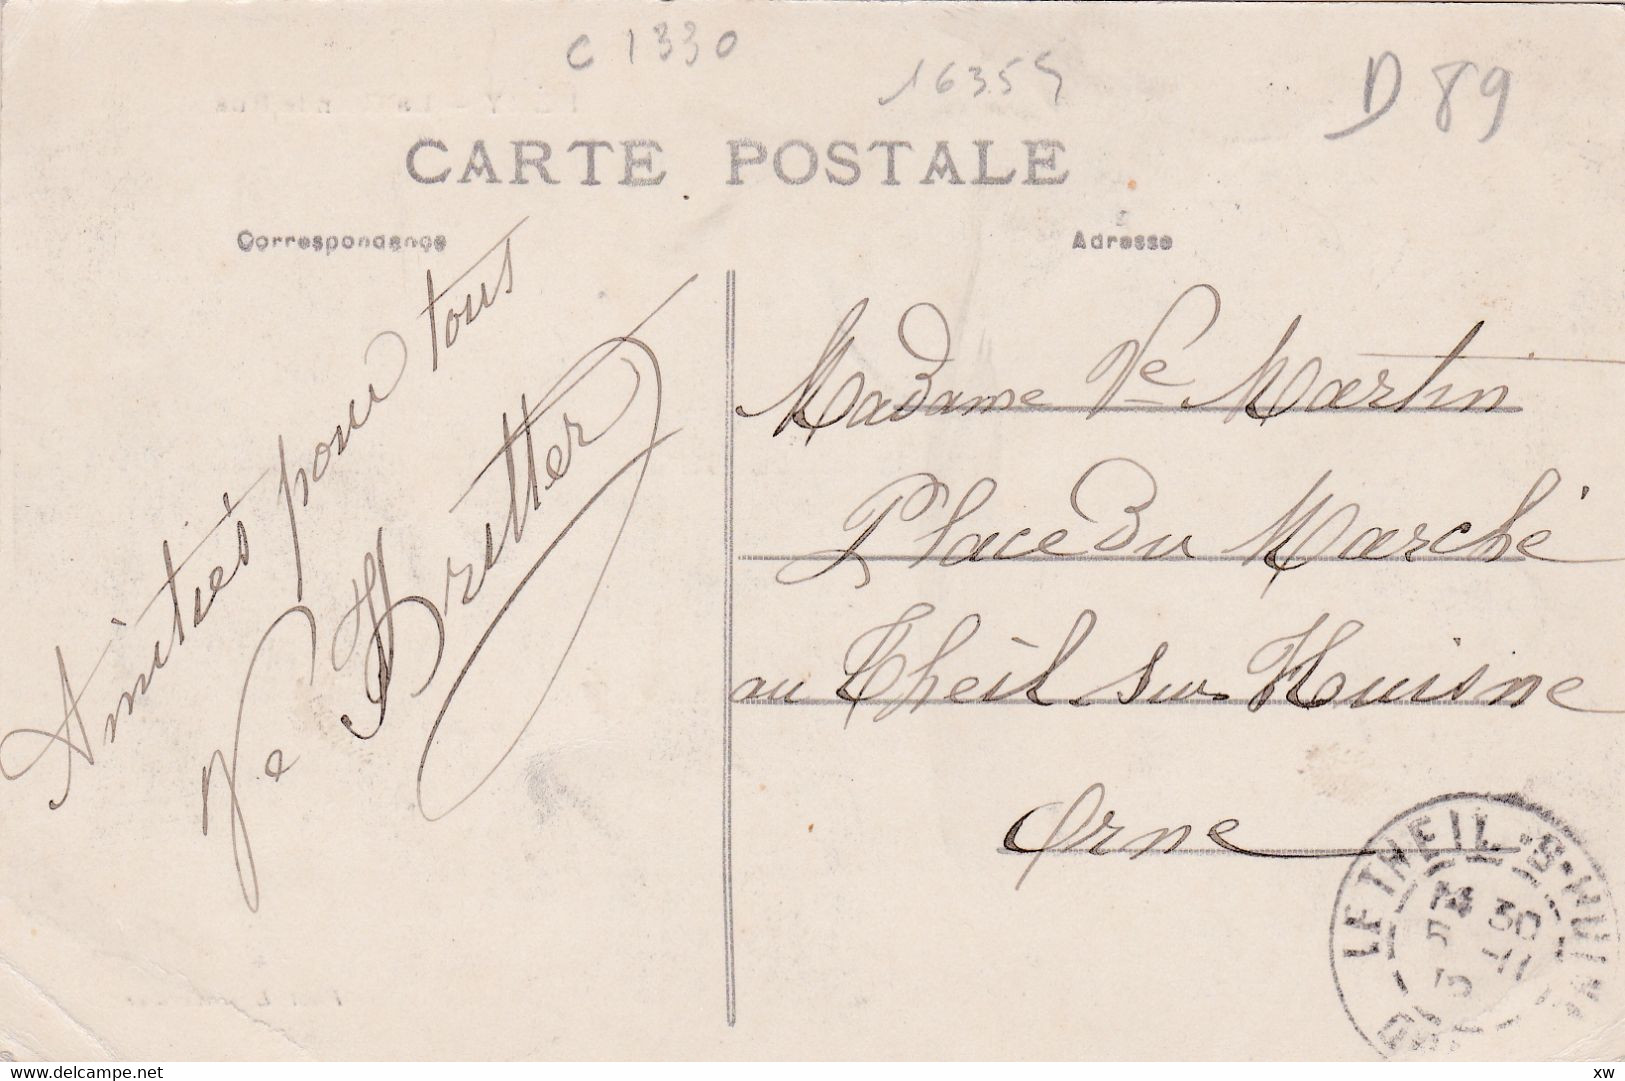 C 1330
16355
D 89
CARTE POSTALE
Correspondance
Adresse
Amitiés pour tous
Ve
Madame Ve Martin
Place Du Marché
au Theil sur Huisne
Orne
LE THEIL-S-HUISNE
14 30
delcampe.net
xw